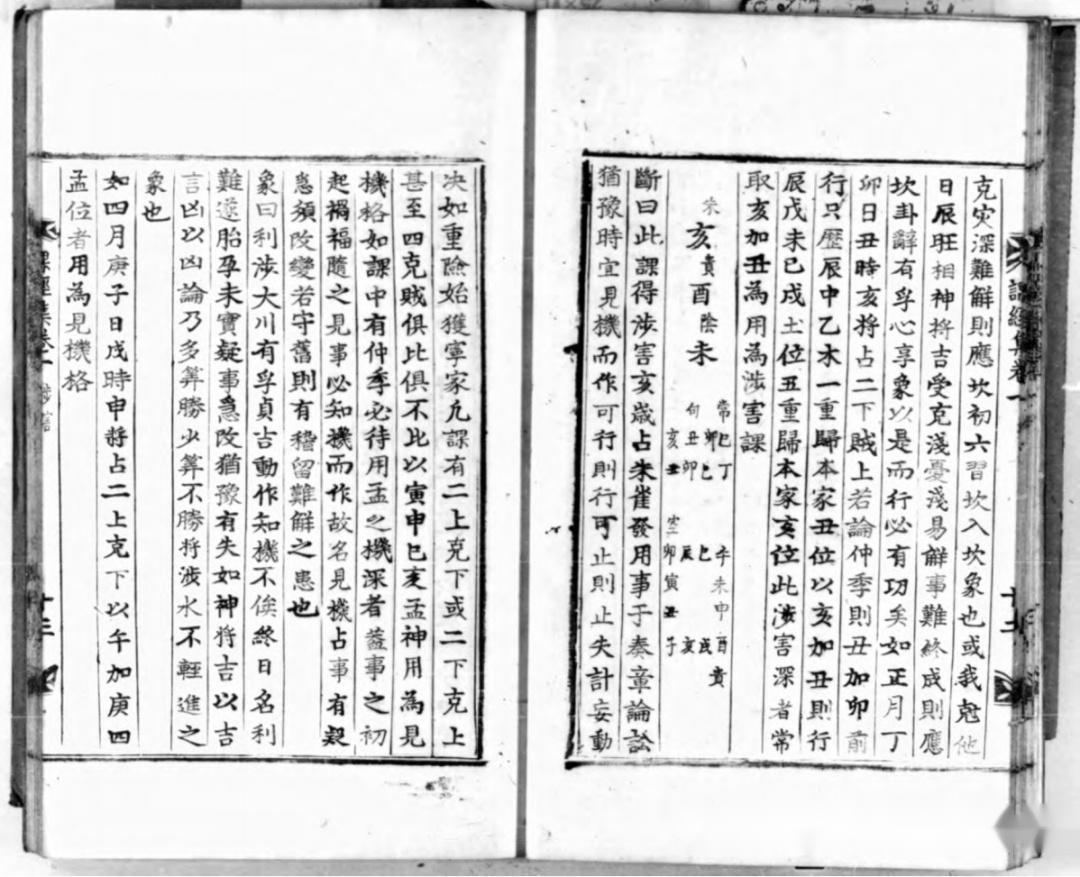 克灾深難解則應坎初六習坎入坎象也或我尅他
日辰旺相神將吉受克淺憂淺易解事難終成則應
坎卦辭有孚心享象以是而行必有功矣如正月丁
卯日丑時亥將占二下賊上若論仲季則丑加卯前
行只歷辰中乙木一重歸本家丑位以亥加丑則行
辰戊未巳戌土位五重歸本家亥位此涉害深者常
取亥加丑為用為涉害課
朱 亥貴酉陰未
常巳丁
卯巳
勾丑卯
亥丑
午未申酉貴
巳 戌
辰 亥
空卯寅丑子
斷曰此課得涉害亥歲占朱雀發用事于奏章論訟
猶豫時宜見機而作可行則行可止則止失計妄動
課經集卷一
十二
决如重險始獲寧家凢課有二上克下或二下克上
甚至四克賊俱比俱不比以寅申巳亥孟神用為見
機格如課中有仲季必待用孟之機深者葢事之初
起禍福隨之見事必知機而作故名見機占事有疑
患須改變若守舊則有稽留難解之患也
象曰利涉大川有孚貞吉動作知機不俟終日名利
難遂胎孕未實疑事急改猶豫有失如神將吉以吉
言凶以凶論乃多筭勝少筭不勝將涉水不輕進之
象也
如四月庚子日戌時申將占二上克下以午加庚四
孟位者用為見機格
課經集卷一 涉害
十三